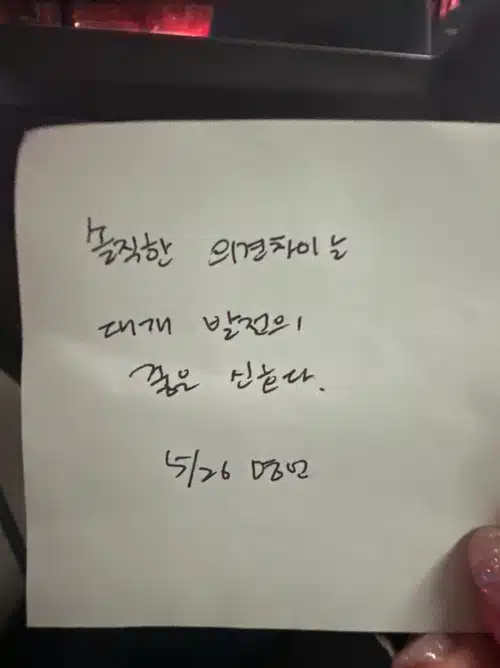 솔직한 의견차이는
대개 발전의
좋은 신호다.
5/26 명언